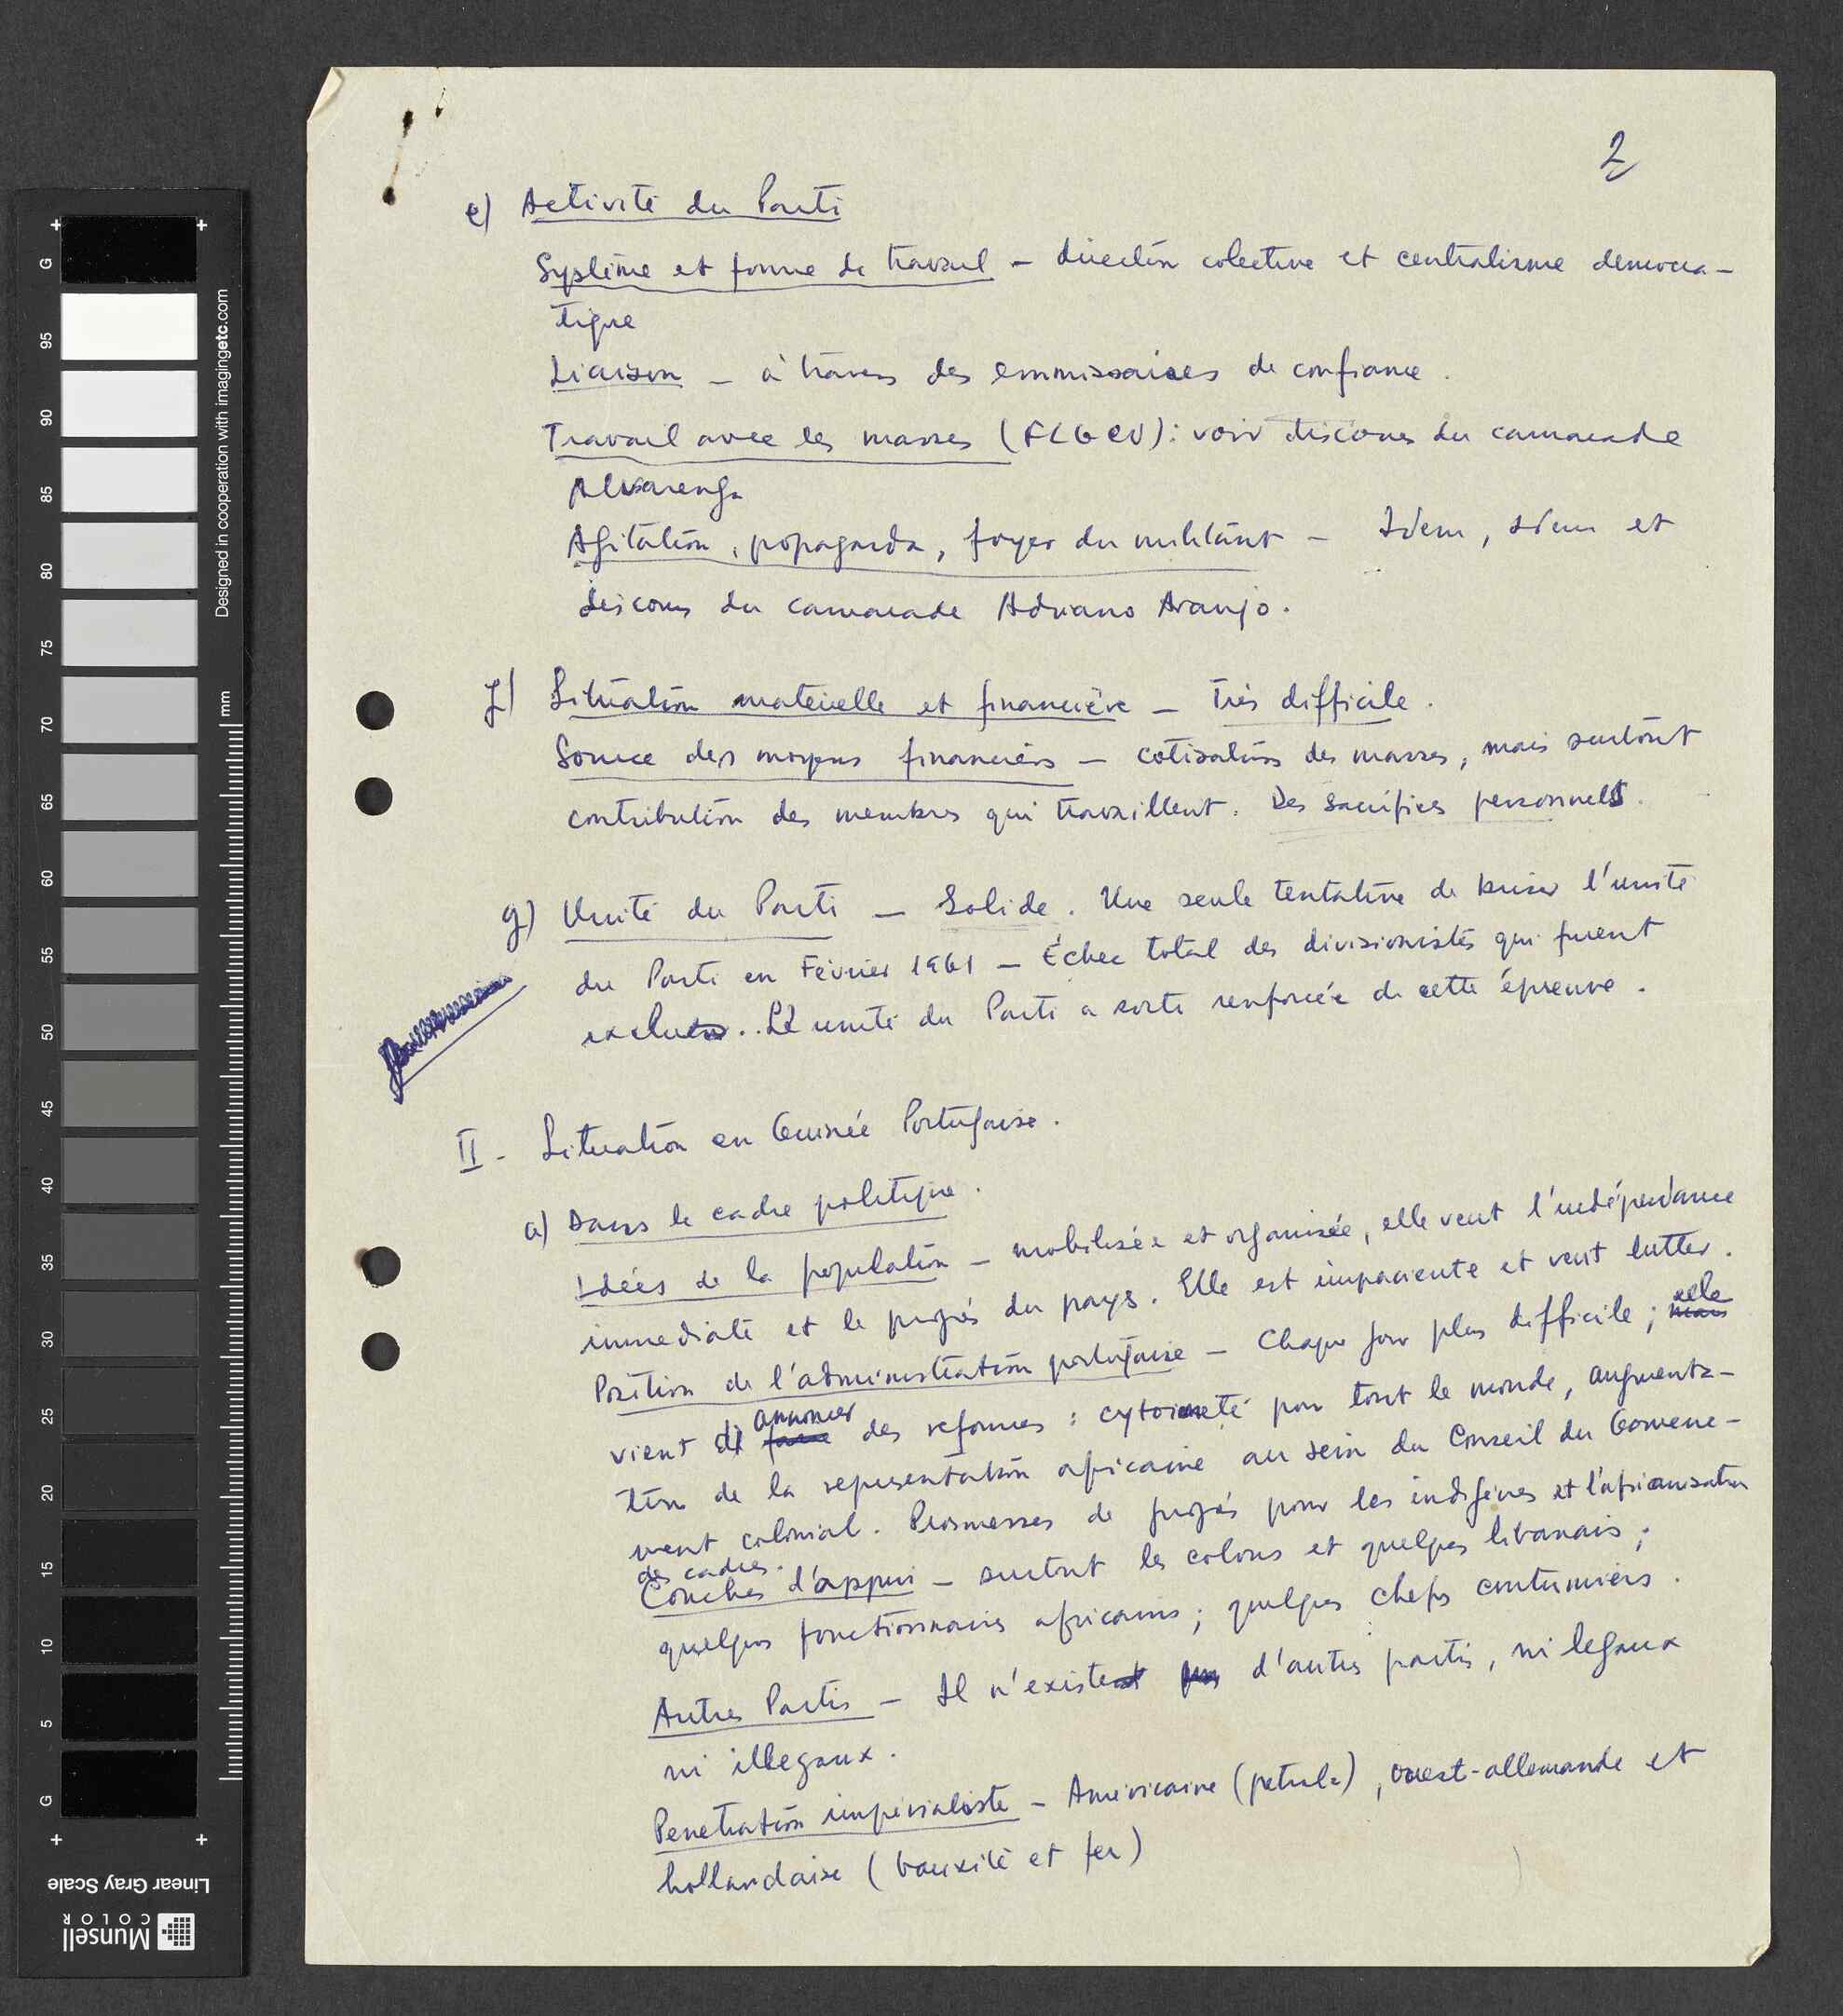 2
e) Activité du Parti
Système et forme de travail – direction colective et centralisme democra-
tique
Liaison – à travers des emmissaires de confiance.
Travail avec les masses (FLGCV): voir discours du camarade
Alvarenga
Agitation, propaganda, foyer du militant – Idem, idem et
discours du camarade Adriano Araujo.
f) Situation materielle et financière – très difficile.
Source des moyens financiers – cotisations des masses, mais surtout
contribution des membres qui travaillent. Des sacrifices personnels.
g) Unité du Parti – Solide. Une seule tentative de briser l'unité
du Parti en Février 1961 – Échec total des divisionistes qui furent
exclus.. L'unité du Parti a sorti renforcée de cette épreuve.
II - Situation en Guinée Portugaise.
a) Dans le cadre politique.
Idées de la population – mobilisée et organisée, elle veut l'indépendance
immediate et le progrés du pays. Elle est impaciente et veut lutter.
Position de l'administration portugaise – Chaque jour plus difficile; mais elle
vient d' faire annoncer des reformes: cytoieneté pour tout le monde, augmenta-
tion de la representation africaine au sein du Conseil du Gouverne-
ment colonial. Promesses de progrés pour les indigènes et l'africanisation
des cadres.
Couches d'appui – surtout les colons et quelques libanais;
quelques fonctionnaires africains; quelques chefs coutumiers.
Autres Partis – Il n'existe pas d'autres partis, ni legaux
ni illegaux.
Penetration imperialiste – Américaine (petrole), ouest-allemande et
hollandaise (bauxite et fer)
G 95 90 85 80 75 70 65 60 55 50 45 40 35 30 25 20 15 10 5 G
mm
Designed in cooperation with imagingetc.com
Linear Gray Scale
Munsell
COLOR